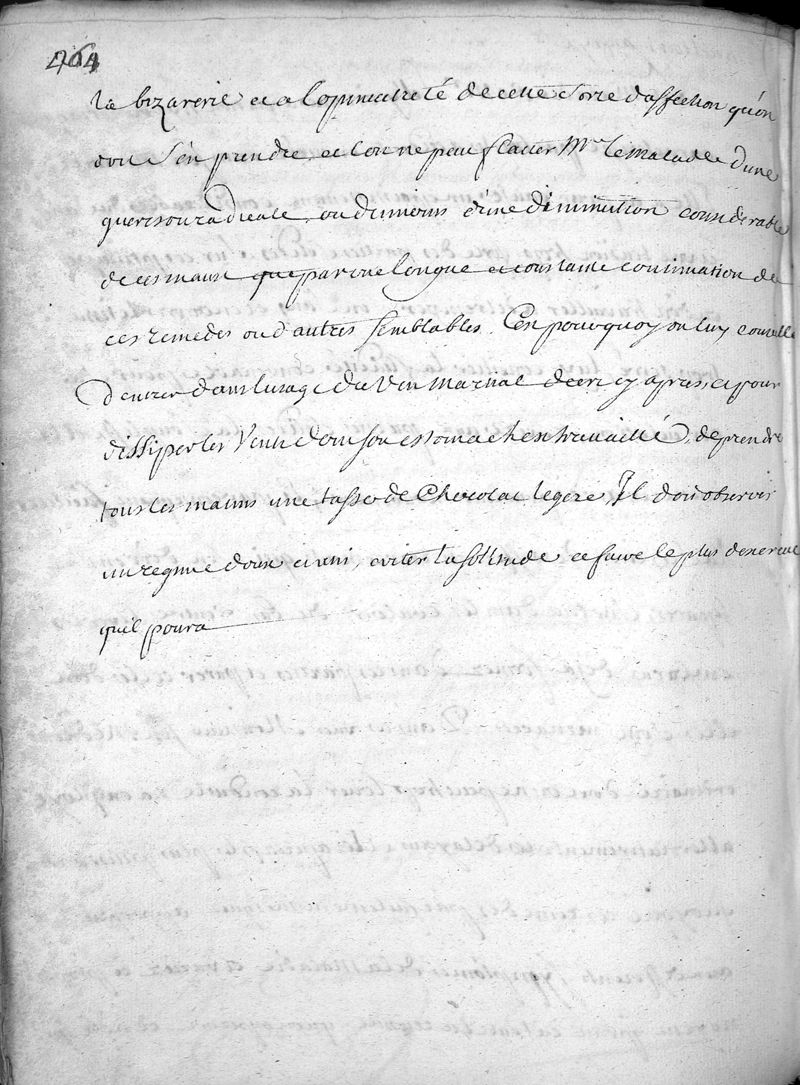 464
la bizarerie et a lopiniatreté de cette sorte d'affection qu'on
doit s'en prendre, et lon ne peut flatter Mr. le malade d'une
guerison radicale, ou du moins d'une diminution considerable
de ces maux que par une longue et constante continuation de
ces remedes ou d'autres semblables. C'est pourquoy on luy conseille
d'entrer dans lusage du vin martial decrit cy apres, et pour
dissiper les vents dont son estomach est travaillé, de prendre
tous les matins une tasse de Chocolat legere, Il doit observer
un regime doux et uni, eviter la solitude et faire le plus dexercice
quil poura